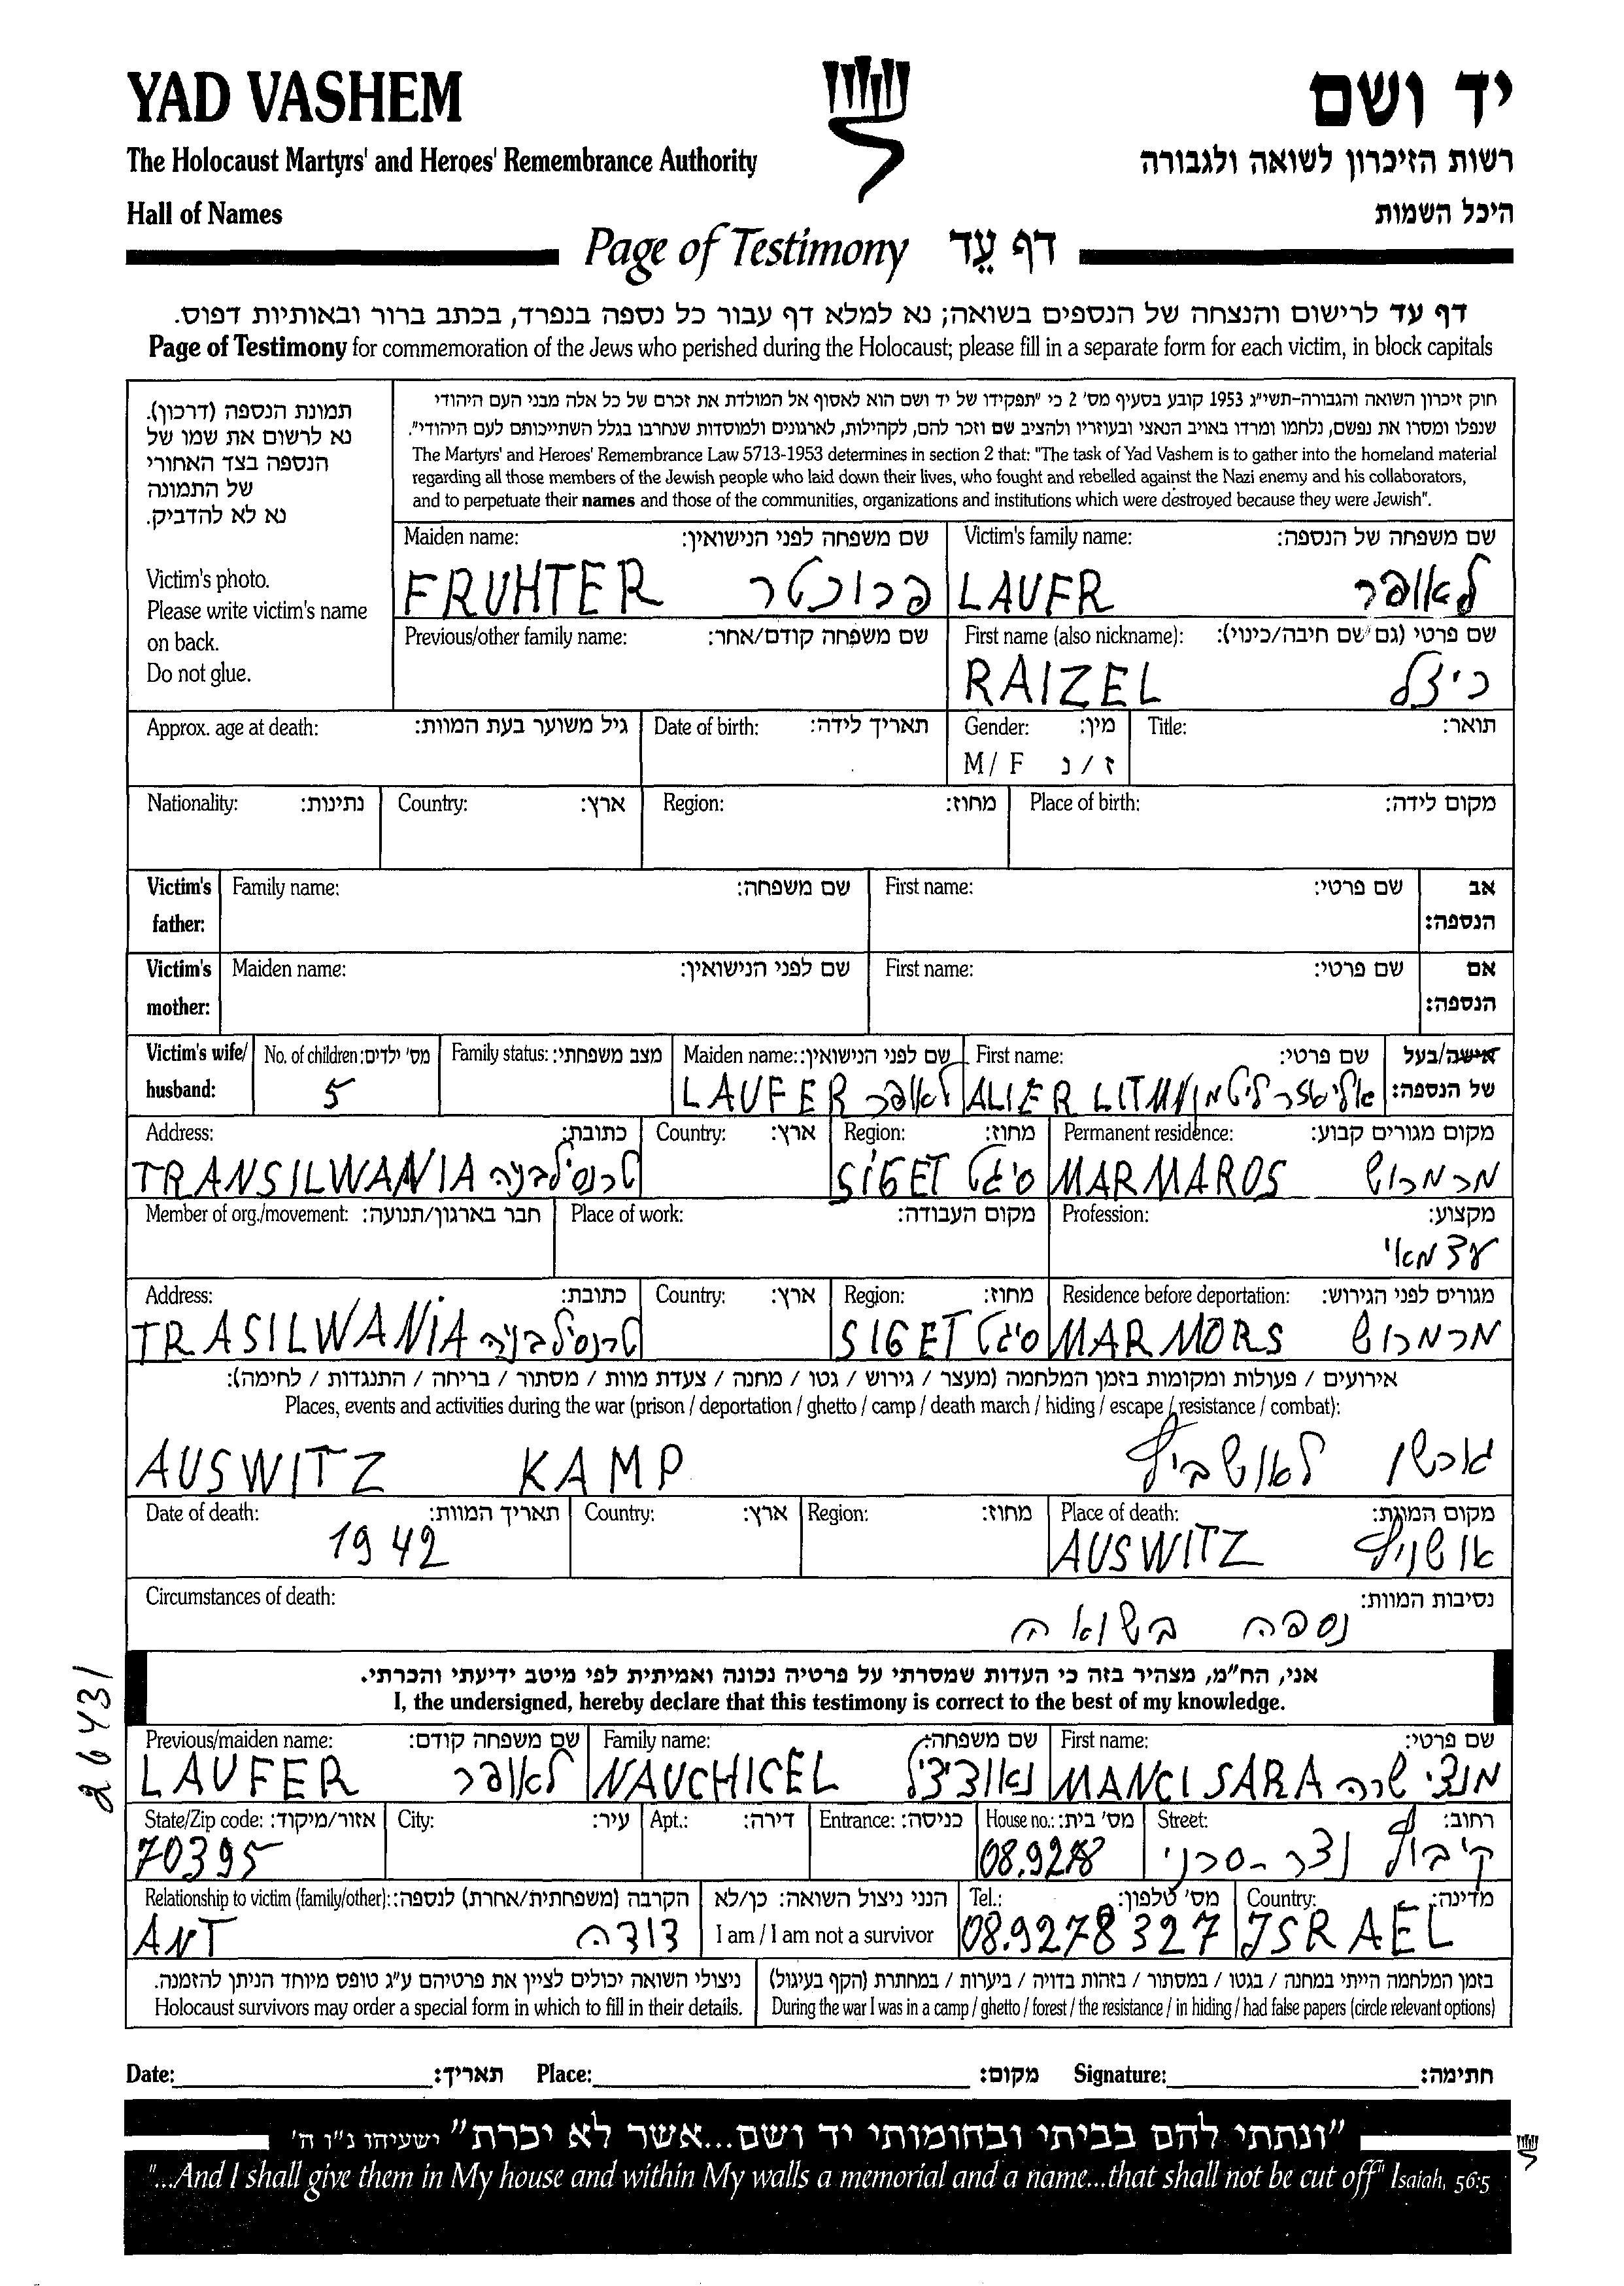 YAD VASHEM יד ושם
The Holocaust Martyrs' and Heroes' Remembrance Authority רשות הזיכרון לשואה ולגבורה
Hall of Names היכל השמות
Page of Testimony דף עֵד
דף עד לרישום והנצחה של הנספים בשואה; נא למלא דף עבור כל נספה בנפרד, בכתב ברור ובאותיות דפוס.
Page of Testimony for commemoration of the Jews who perished during the Holocaust; please fill in a separate form for each victim, in block capitals
תמונת הנספה (דרכון).
נא לרשום את שמו של
הנספה בצד האחורי
של התמונה
נא לא להדביק.
Victim's photo.
Please write victim's name
on back.
Do not glue.
חוק זיכרון השואה והגבורה-תשי"ג 1953 קובע בסעיף מס' 2 כי "תפקידו של יד ושם הוא לאסוף אל המולדת את זכרם של כל אלה מבני העם היהודי
שנפלו ומסרו את נפשם, נלחמו ומרדו באויב הנאצי ובעוזריו ולהציב שם וזכר להם, לקהילות, לארגונים ולמוסדות שנחרבו בגלל השתייכותם לעם היהודי".
The Martyrs' and Heroes' Remembrance Law 5713-1953 determines in section 2 that: "The task of Yad Vashem is to gather into the homeland material
regarding all those members of the Jewish people who laid down their lives, who fought and rebelled against the Nazi enemy and his collaborators,
and to perpetuate their names and those of the communities, organizations and institutions which were destroyed because they were Jewish".
Maiden name: שם משפחה לפני הנישואין: Victim's family name: שם משפחה של הנספה:
FRUHTER פרוכטר LAUFR לאופר
Previous/other family name: שם משפחה קודם/אחר: First name (also nickname): שם פרטי (גם שם חיבה/כינוי):
RAIZEL ריזל
Approx. age at death: גיל משוער בעת המוות: Date of birth: תאריך לידה: Gender: מין: Title: תואר:
M / F ז / נ
Nationality: נתינות: Country: ארץ: Region: מחוז: Place of birth: מקום לידה:
Victim's Family name: שם משפחה: First name: שם פרטי: אב
father: הנספה:
Victim's Maiden name: שם לפני הנישואין: First name: שם פרטי: אם
mother: הנספה:
Victim's wife/ No. of children: מס' ילדים: Family status: מצב משפחתי: Maiden name: שם לפני הנישואין: First name: שם פרטי: אישה/בעל
husband: 5 LAUFER לאופר ALIER LITMAN אליעזר ליטמן של הנספה:
Address: כתובת: Country: ארץ: Region: מחוז: Permanent residence: מקום מגורים קבוע:
TRANSILWANIA טרנסילבניה SIGET סיגט MARMAROS מרמרוש
Member of org./movement: חבר בארגון/תנועה: Place of work: מקום העבודה: Profession: מקצוע:
עצמאי
Address: כתובת: Country: ארץ: Region: מחוז: Residence before deportation: מגורים לפני הגירוש:
TRASILWANIA טרנסילבניה SIGET סיגט MARMORS מרמרוש
אירועים / פעולות ומקומות בזמן המלחמה (מעצר / גירוש / גטו / מחנה / צעדת מוות / מסתור / בריחה / התנגדות / לחימה):
Places, events and activities during the war (prison / deportation / ghetto / camp / death march / hiding / escape / resistance / combat):
AUSWITZ KAMP לאושביץ
Date of death: תאריך המוות: Country: ארץ: Region: מחוז: Place of death: מקום המוות:
1942 AUSWITZ אושויץ
Circumstances of death: נסיבות המוות:
נספה בשואה
אני, הח"מ, מצהיר בזה כי העדות שמסרתי על פרטיה נכונה ואמיתית לפי מיטב ידיעתי והכרתי.
I, the undersigned, hereby declare that this testimony is correct to the best of my knowledge.
26431
Previous/maiden name: שם משפחה קודם: Family name: שם משפחה: First name: שם פרטי:
LAUFER לאופר NAUCHICEL נאוציצל MANCI SARA מנצי שרה
State/Zip code: אזור/מיקוד: City: עיר: Apt.: דירה: Entrance: כניסה: House no.: מס' בית: Street: רחוב:
70395 קיבוץ נצר-סרני
Relationship to victim (family/other): הקרבה (משפחתית/אחרת) לנספה: הנני ניצול השואה: כן/לא Tel.: מס' טלפון: Country: מדינה:
ANT דודה I am / I am not a survivor 08.9278327 ISRAEL
ניצולי השואה יכולים לציין את פרטיהם ע"ג טופס מיוחד הניתן להזמנה. בזמן המלחמה הייתי במחנה / בגטו / במסתור / בזהות בדויה / ביערות / במחתרת (הקף בעיגול)
Holocaust survivors may order a special form in which to fill in their details. During the war I was in a camp / ghetto / forest / the resistance / in hiding / had false papers (circle relevant options)
Date: תאריך: Place: מקום: Signature: חתימה:
"ונתתי להם בביתי ובחומותי יד ושם...אשר לא יכרת" ישעיהו נ"ו ה'
"...And I shall give them in My house and within My walls a memorial and a name...that shall not be cut off" Isaiah, 56:5